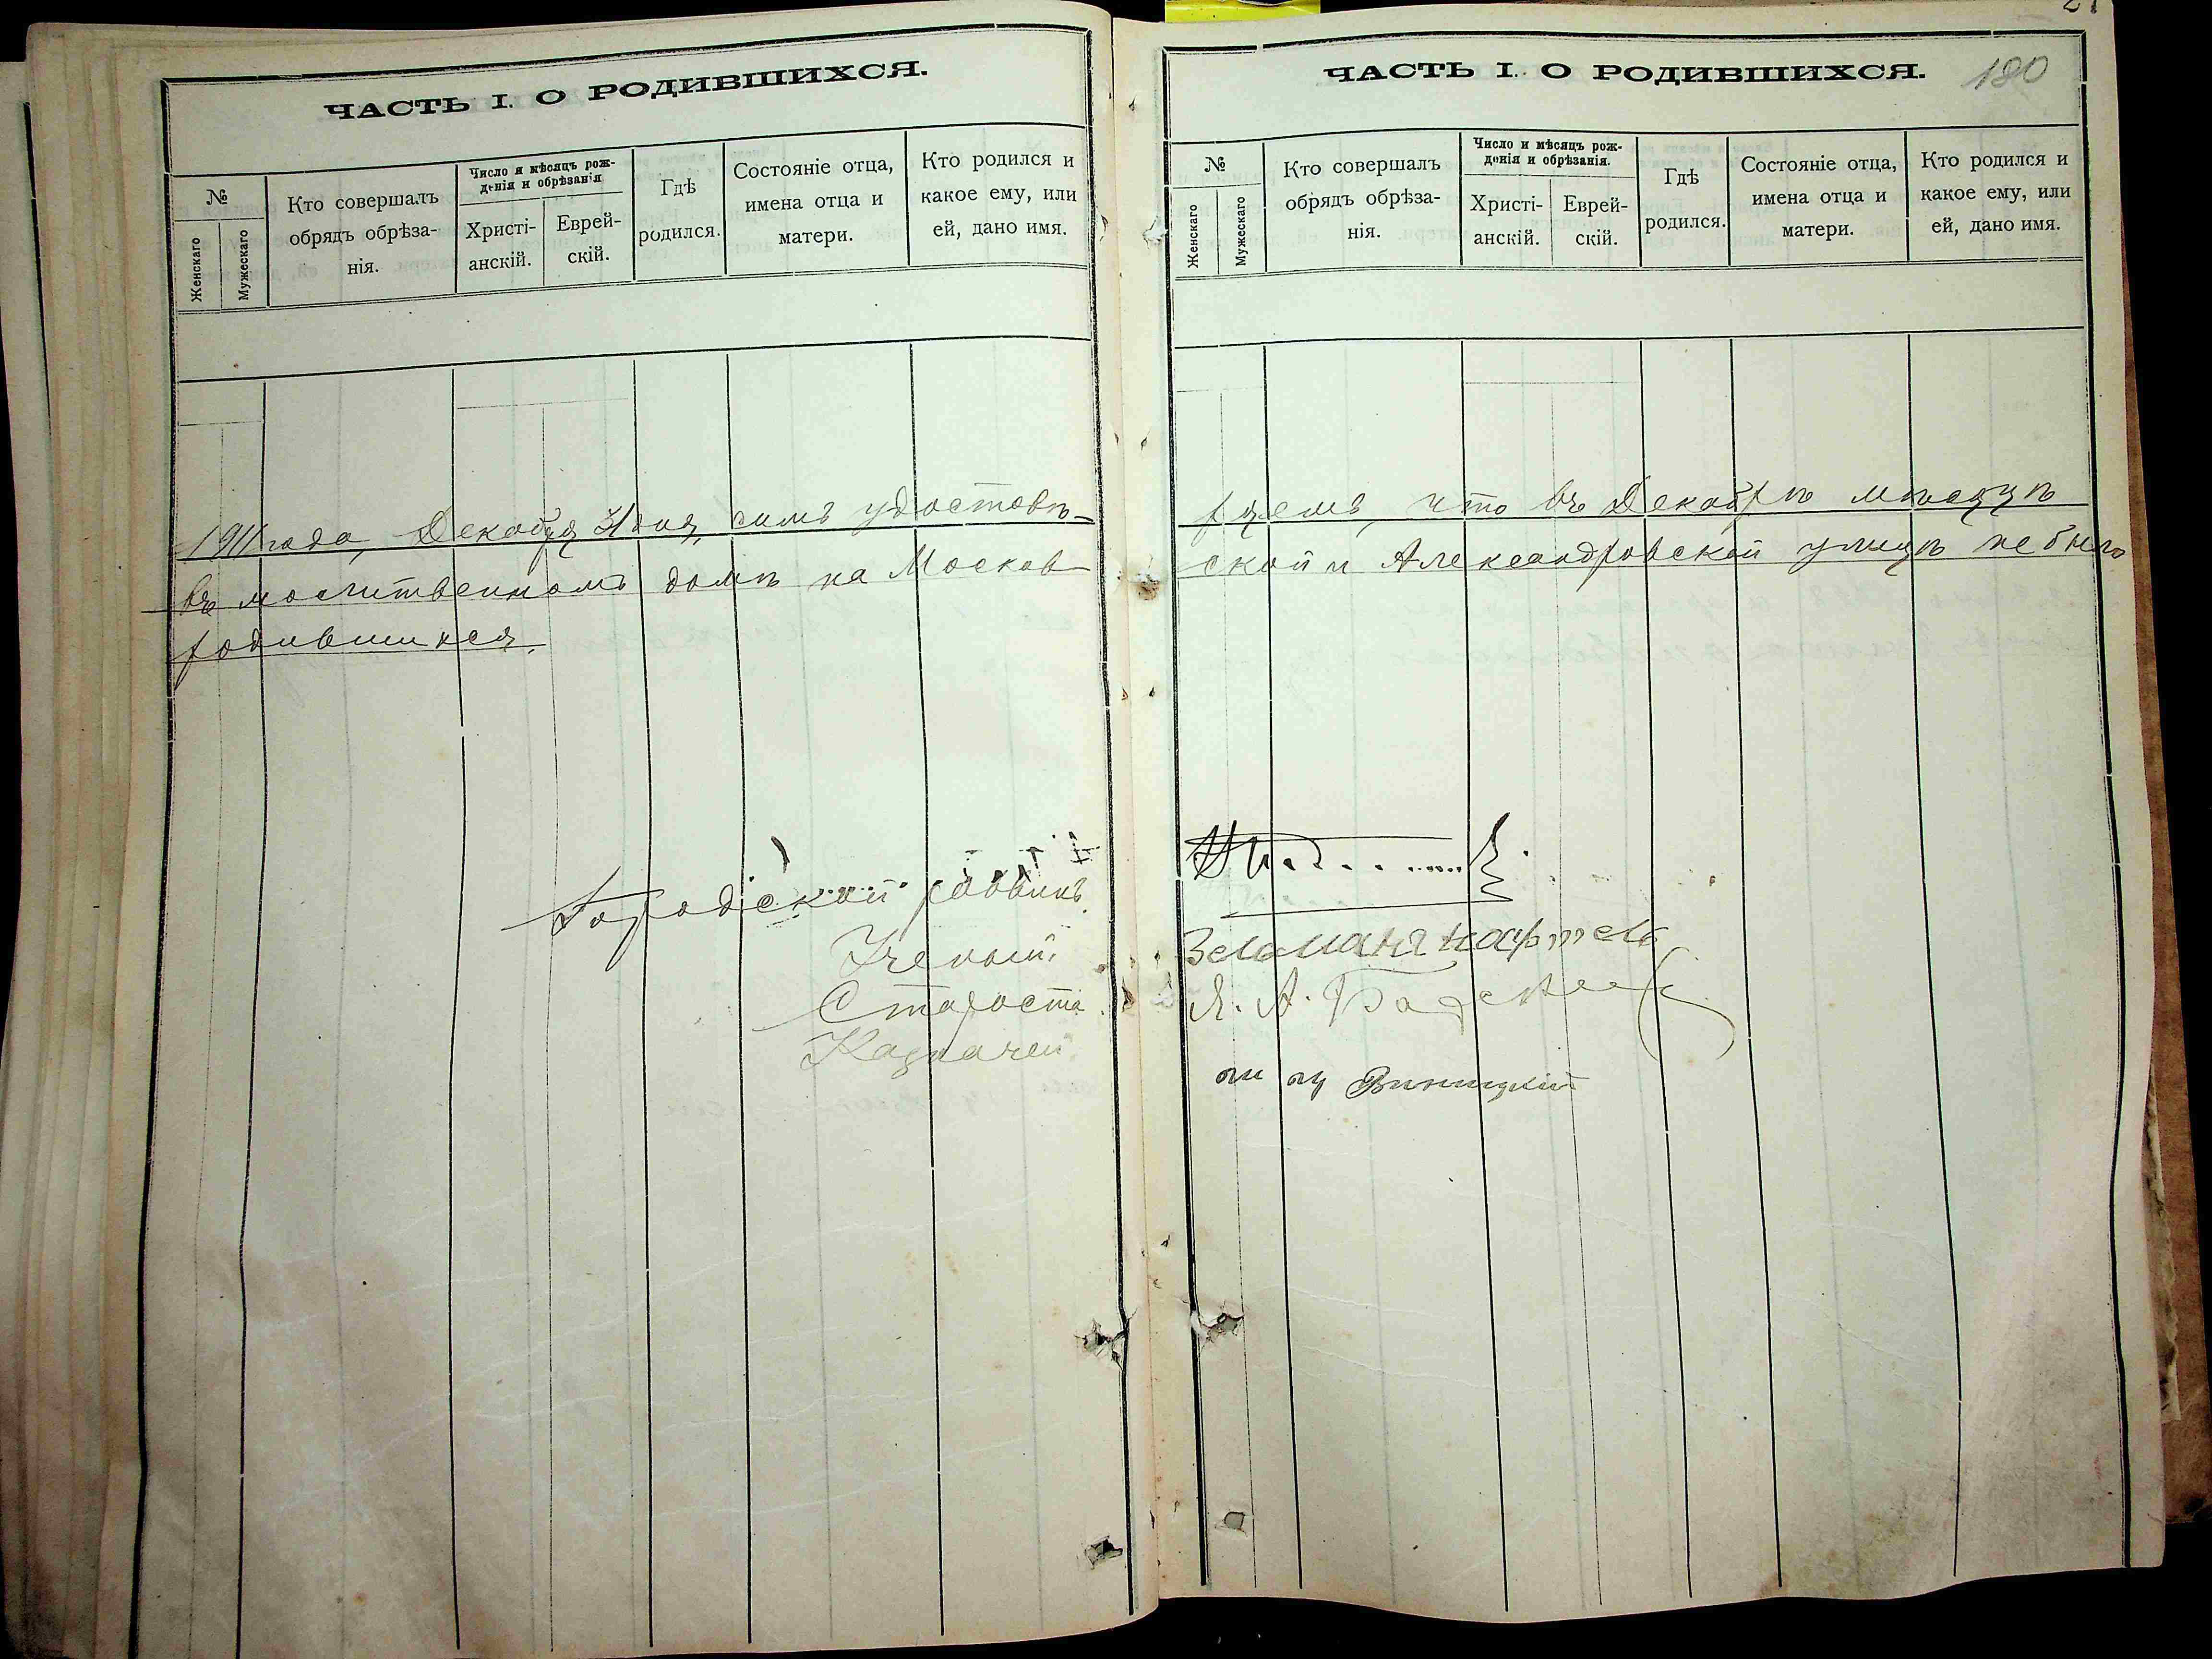 ЧАСТЬ I. О РОДИВШИХСЯ.
№
Женскаго
Мужескаго
Кто совершалъ
обрядъ обрѣза-
нія.
Число и мѣсяцъ рож-
денія и обрѣзанія
Христі-
анскій.
Еврей-
скій.
Гдѣ
родился.
Состояніе отца,
имена отца и
матери.
Кто родился и
какое ему, или
ей, дано имя.
1911 года, Декабря 31 дня, симъ удостовѣ-
въ молитвенномъ домѣ на Москов-
родившихся.
Городской раввинъ
Ученый
Староста
Казначей
180
ЧАСТЬ I. О РОДИВШИХСЯ.
№
Женскаго
Мужескаго
Кто совершалъ
обрядъ обрѣза-
нія.
Число и мѣсяцъ рож-
денія и обрѣзанія.
Христі-
анскій.
Еврей-
скій.
Гдѣ
родился.
Состояніе отца,
имена отца и
матери.
Кто родился и
какое ему, или
ей, дано имя.
ряемъ, что въ Декабрѣ мѣсяцѣ
ской и Александровской улицѣ не было
Зельманъ
Я. А.
Виницкій